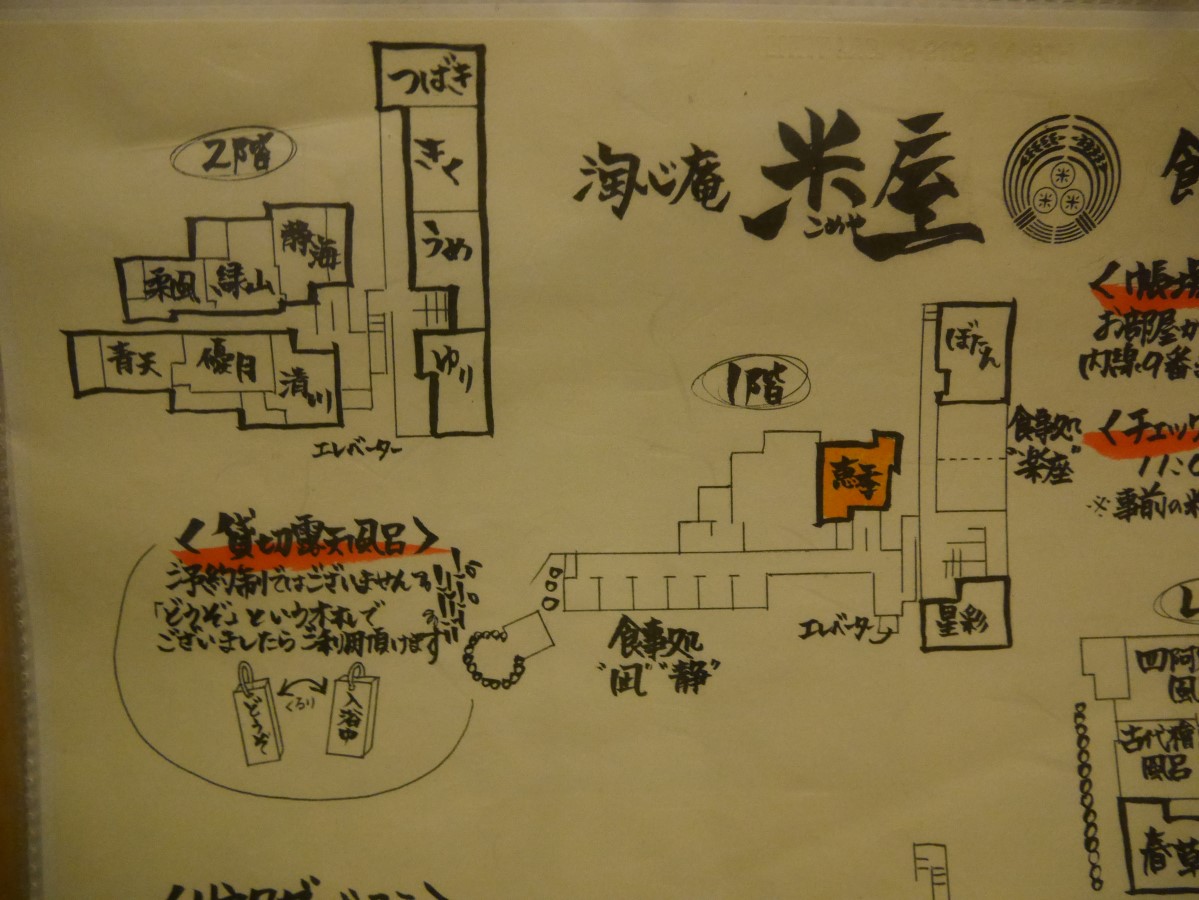 2階
つばき
きく
うめ
ゆり
静海
緑山
栗風
青天
優月
清川
エレベーター
淘心庵 米屋
こめや
米
米 米
食
1階
ぼたん
食事処
"楽座"
恵季
星彩
エレベーター
食事処
"凪" "静"
〈貸切露天風呂〉
ご予約制ではございませんので
「どうぞ」という木札で
ございましたらご利用頂けます
どうぞ
くるり
入浴中
〈帳場
お部屋か
内線9番
〈チェック
11:0
※事前の
四阿
風
古代檜
風呂
春草